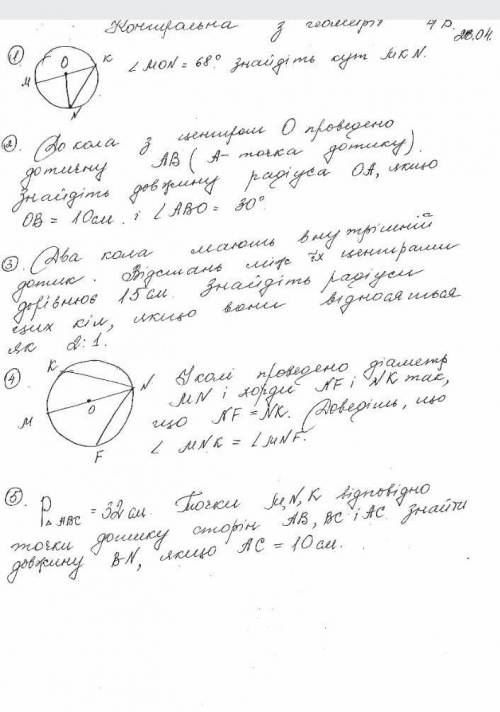 Контрольна з геометрії 7 в.
28.04.
1 ∠MON = 68° знайдіть кут MKN.
O
K
M
N
2. До кола з центром О проведено
дотичну AB (A- точка дотику).
Знайдіть довжину радіуса OA, якщо
OB = 10см. і ∠ABO = 30°
3. Два кола мають внутрішній
дотик. Відстань між їх центрами
дорівнює 15 см. Знайдіть радіуси
цих кіл, якщо вони відносяться
як 2:1.
4 У колі проведено діаметр
MN і хорди NF і NK так,
що NF = NK. Доведіть, що
∠MNK = ∠MNF.
K
N
O
M
F
5. P△ABC = 32 см. Точки M, N, K відповідно
точки дотику сторін AB, BC і AC знайти
довжину BN, якщо AC = 10 см.